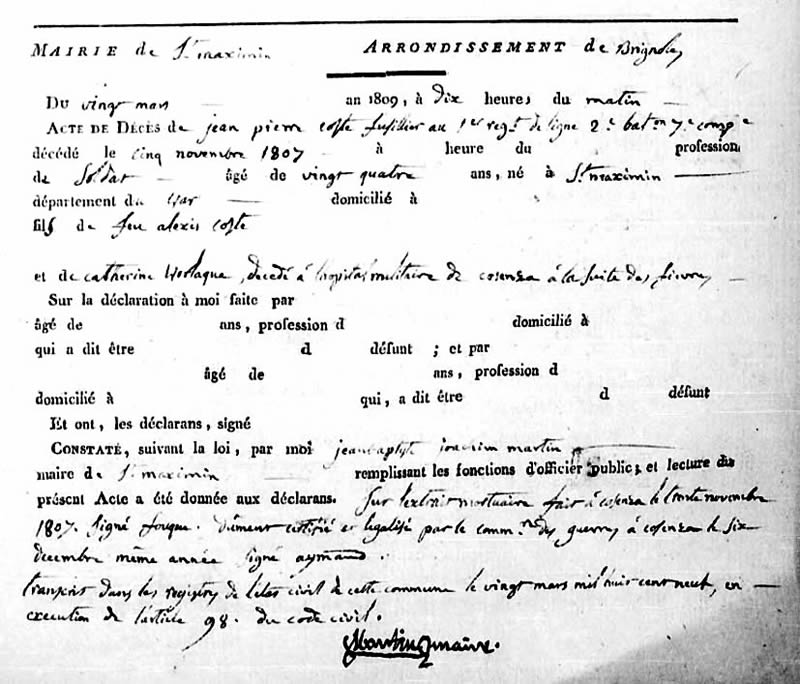 MAIRIE de St maximin ARRONDISSEMENT de Brignoles
Du vingt mars an 1809, à dix heures du matin
ACTE DE DÉCÈS de jean pierre coste fusillier au 1er regt de ligne 2e baton 7e compie
décédé le cinq novembre 1807 à heure du profession
de Soldat âgé de vingt quatre ans, né à St maximin
département du var domicilié à
fils de feu alexis coste
et de catherine , decedé à l'hopital militaire de cosenza à la suite des fievres
Sur la déclaration à moi faite par
âgé de ans, profession d domicilié à
qui a dit être d défunt ; et par
âgé de ans, profession d
domicilié à qui, a dit être d défunt
Et ont, les déclarans, signé
CONSTATÉ, suivant la loi, par moi jean baptiste joachim martin
maire de St maximin remplissant les fonctions d'officier public; et lecture du
présent Acte a été donnée aux déclarans. Sur l'extrait mortuaire fait à cosenza le trente novembre
1807. signé fouque. dûment certifié et legalisé par le commre des guerres à cosenza le six
decembre même année signé aymard.
transcrit dans les registres de l'état civil de cette commune le vingt mars mil huit cent neuf, en
execution de l'article 98. du code civil.
Martin maire.